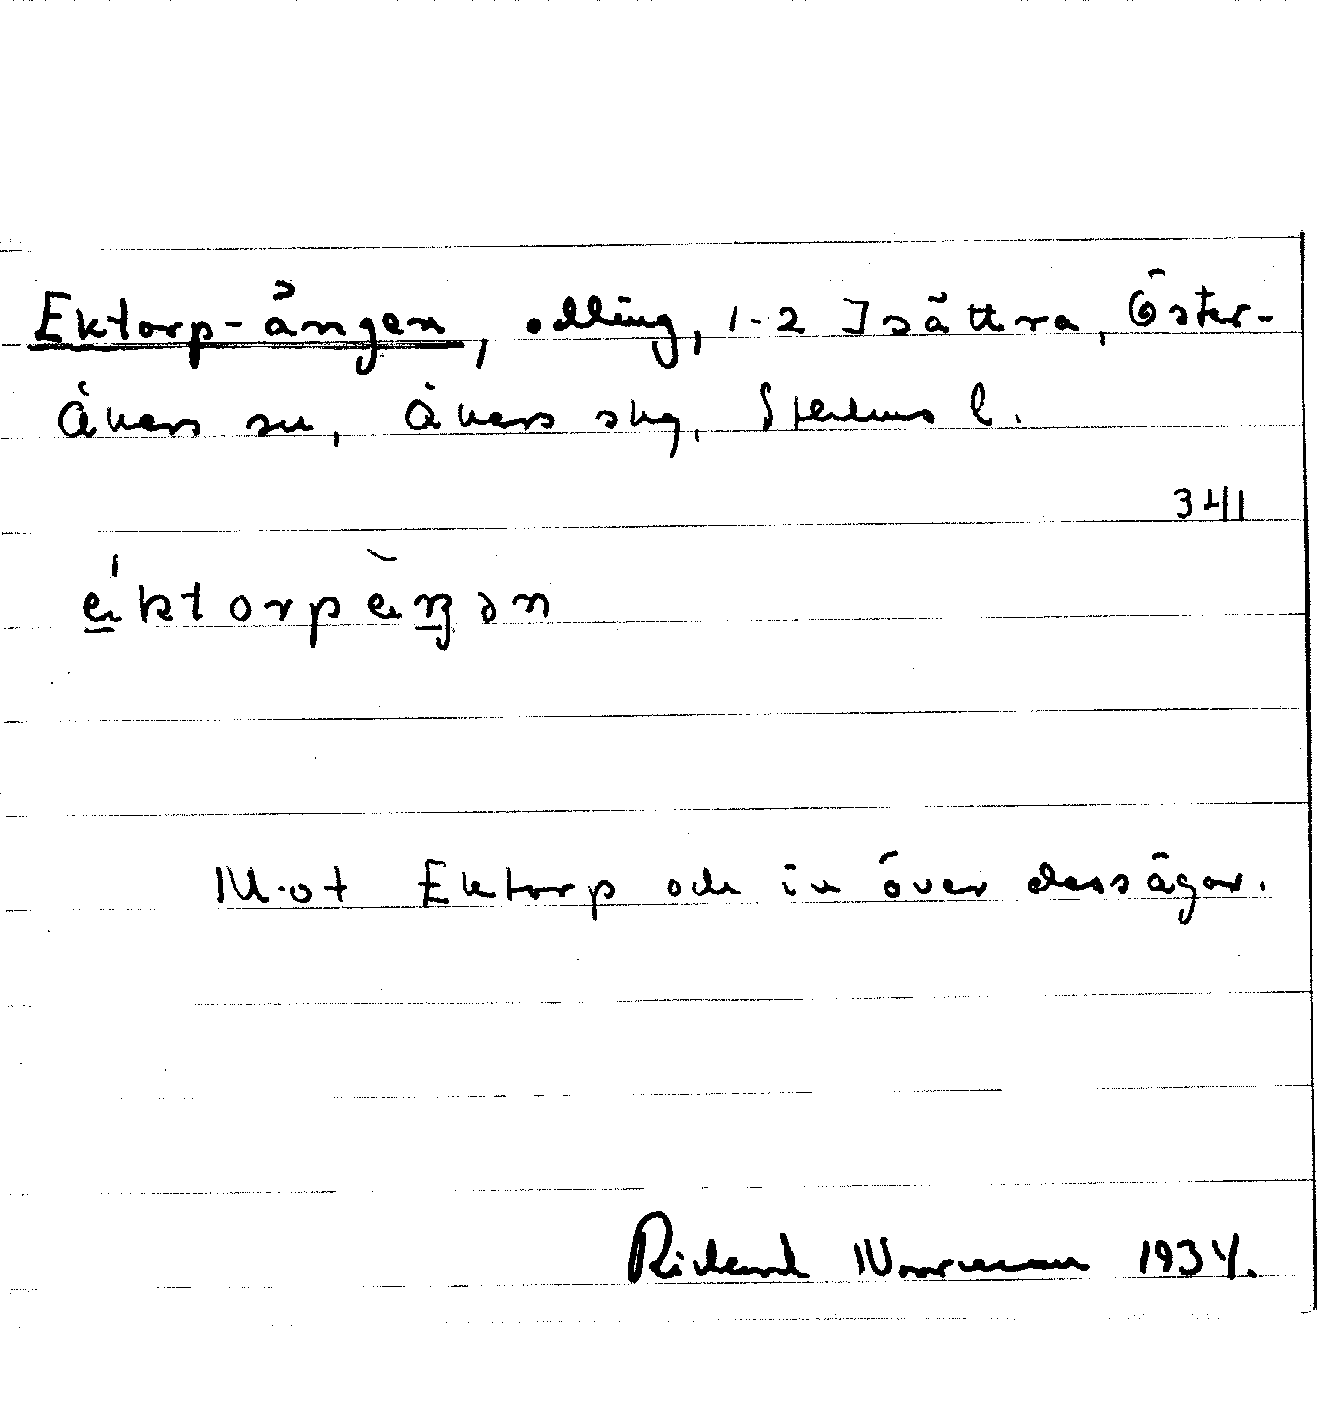 Ektorp-ängen, odling, 1-2 Isättra, Öster-
Åkers sn, Åkers skg, Sthlms l.
341
Mot Ektorp och in över dess ägor.
Rickard Norrman 1934.